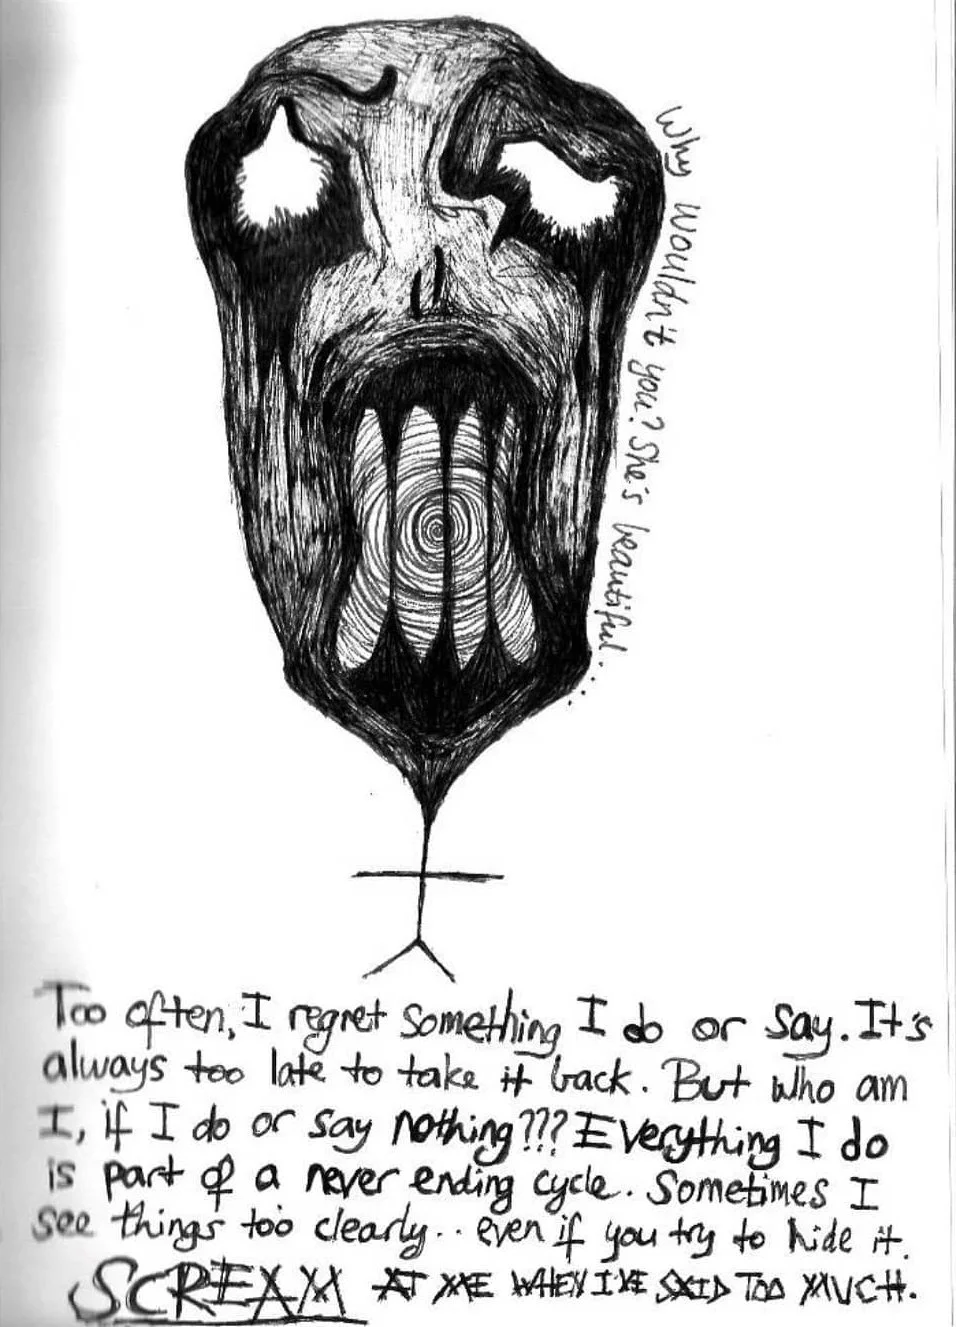 Why Wouldn't you? She's beautiful.....
Too often, I regret something I do or say. It's
always too late to take it back. But who am
I, if I do or say nothing??? Everything I do
is part of a never ending cycle. Sometimes I
see things too clearly.. even if you try to hide it.
SCREAM AT ME WHEN I'VE SAID TOO MUCH.